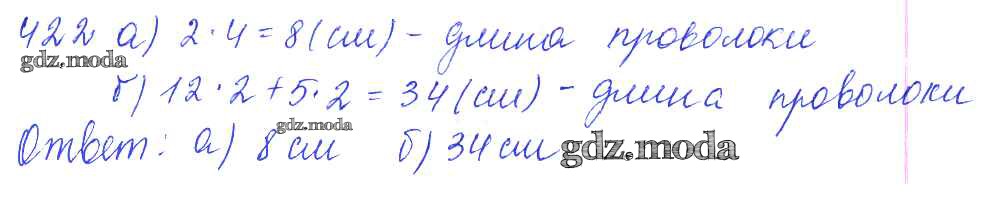 422 а) 2·4=8(см) - длина проволоки
gdz.moda
б) 12·2+5·2=34(см) - длина проволоки
gdz.moda
Ответ: а) 8см б) 34см
gdz.moda